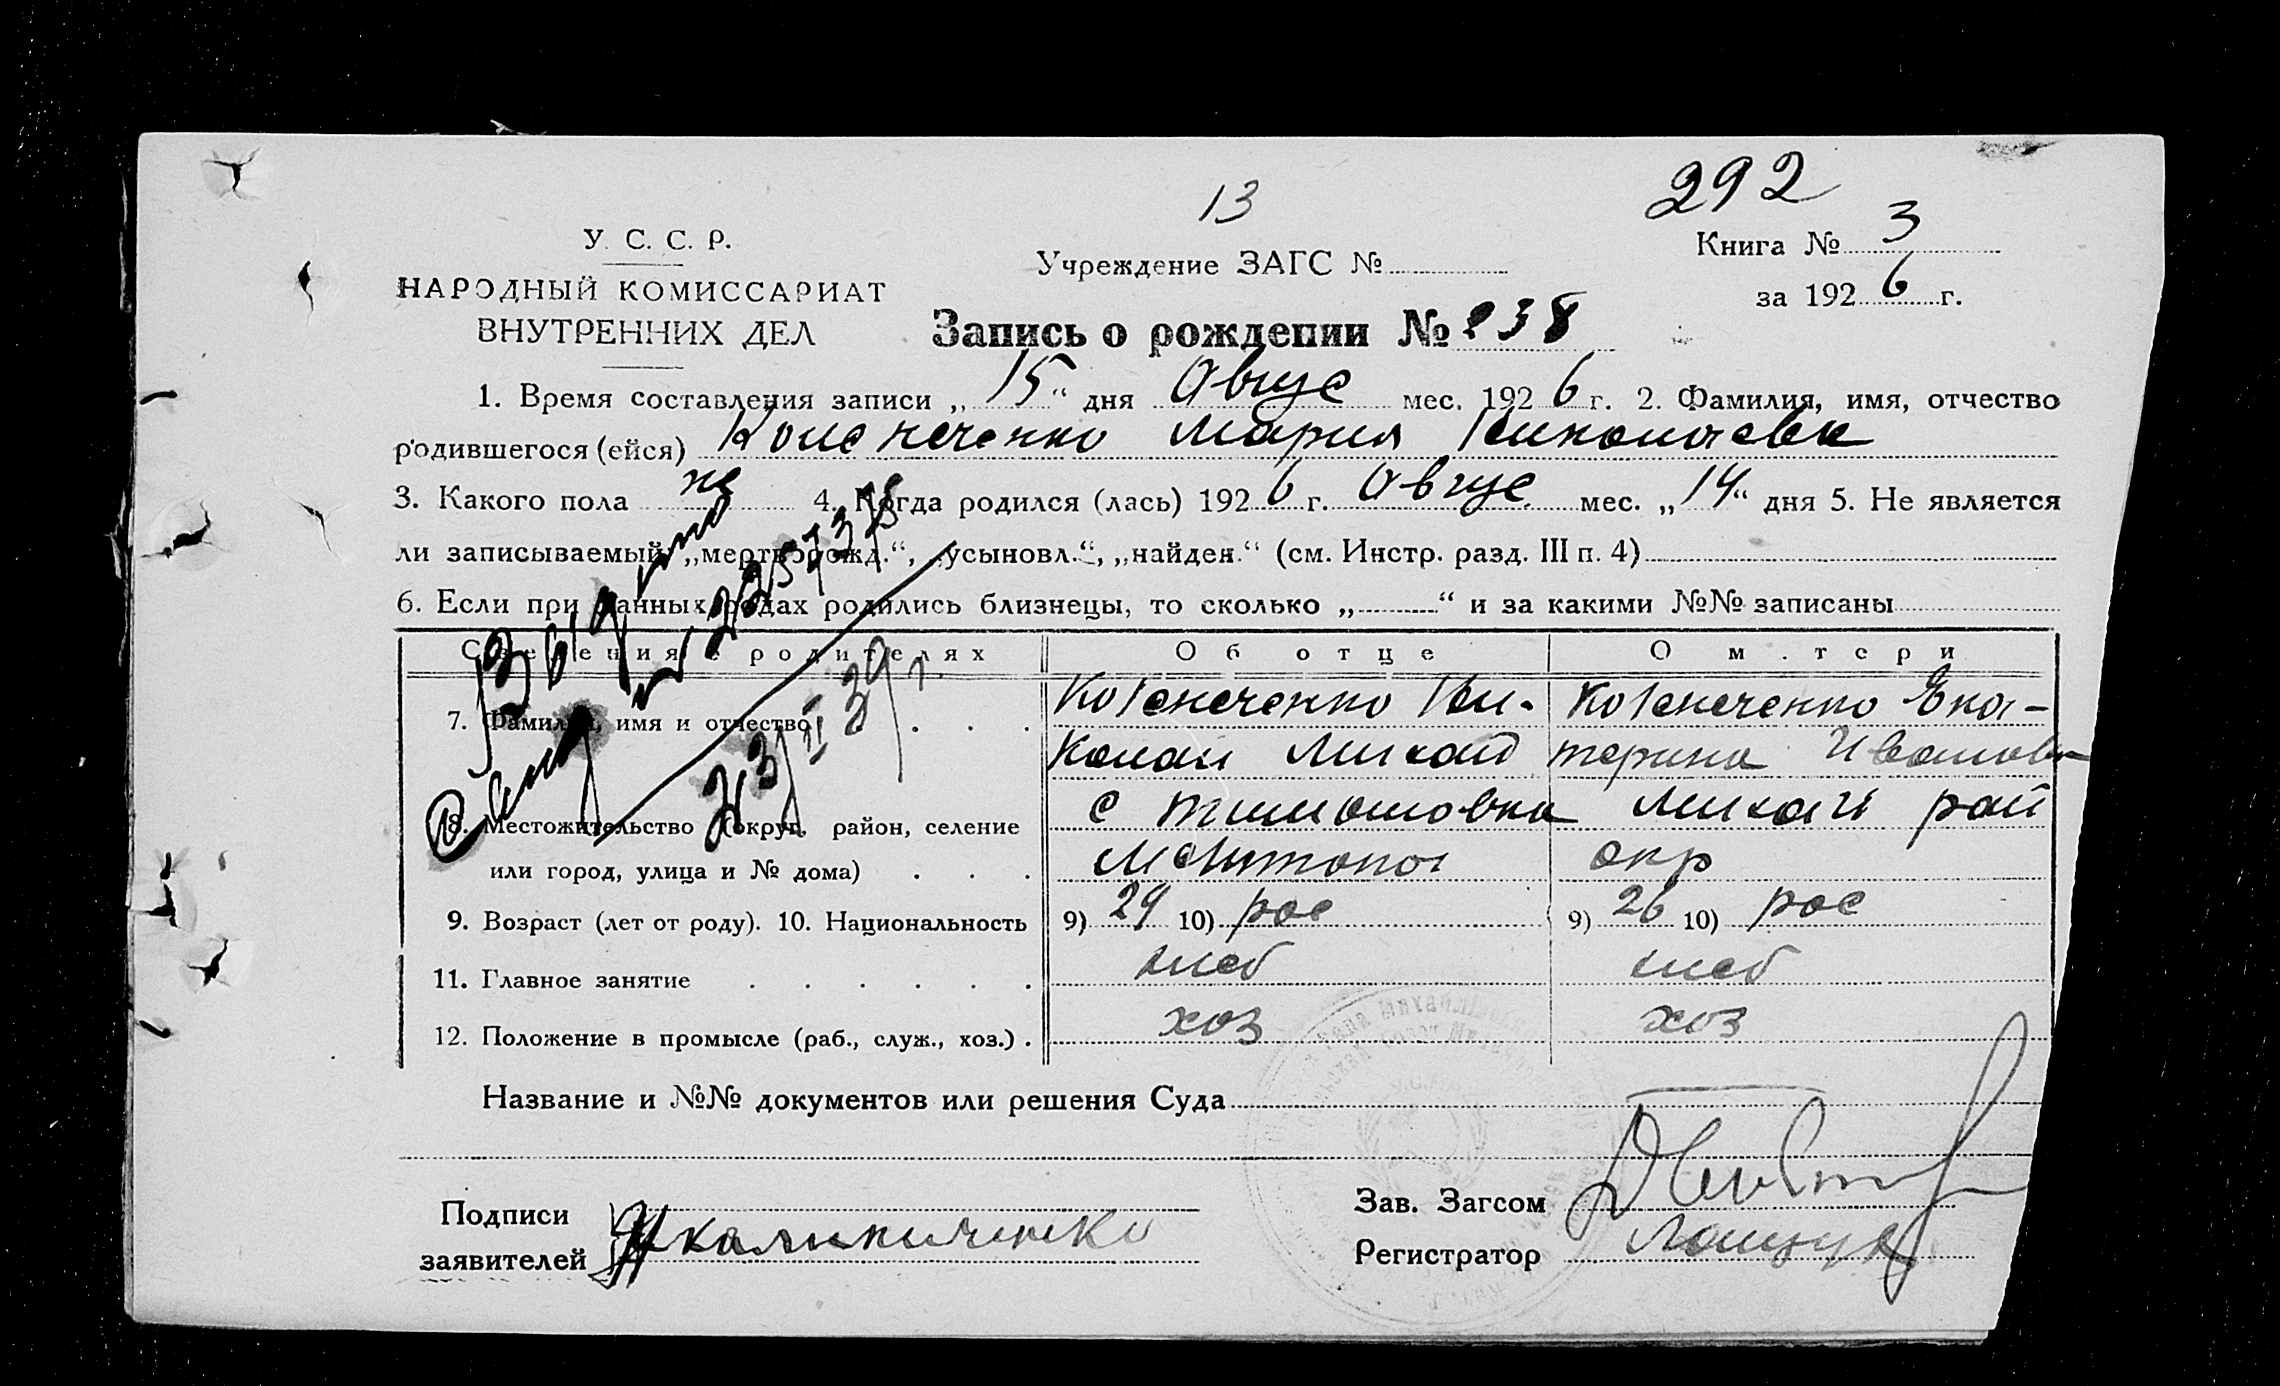 292
13
У. С. С. Р.
Учреждение ЗАГС №
Книга № 3
НАРОДНЫЙ КОМИССАРИАТ
за 1926 г.
ВНУТРЕННИХ ДЕЛ
Запись о рождении № 238
1. Время составления записи „15“ дня Авгус мес. 1926 г. 2. Фамилия, имя, отчество
родившегося (ейся) Мария Николаевн
3. Какого пола же 4. Когда родился (лась) 1926 г. Авгус мес. „14“ дня 5. Не является
ли записываемый „мерткорожд.“, „усыновл.“, „найден.“ (см. Инстр. разд. III п. 4)
6. Если при данных родах родились близнецы, то сколько „ “ и за какими №№ записаны
Сведения о родителях Об отце О матери
7. Фамилия, имя и отчество Ни- Ека-
колай Михай терина Иванов
8. Местожительство (округ, район, селение с Тимошовка Михай рай
или город, улица и № дома) Мелитопол окр
9. Возраст (лет от роду). 10. Национальность 9) 29 10) рос 9) 26 10) рос
11. Главное занятие хлеб хлеб
12. Положение в промысле (раб., служ., хоз.) хоз хоз
Название и №№ документов или решения Суда
Подписи
заявителей
Зав. Загсом
Регистратор